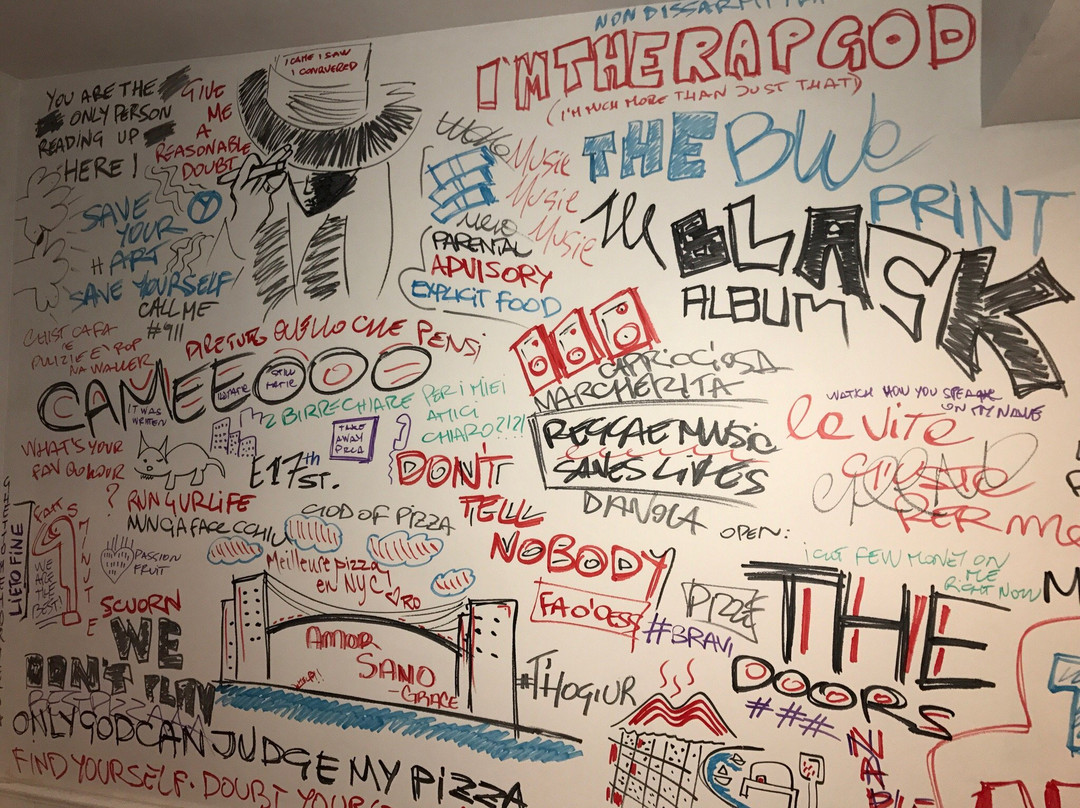 I CAME I SAW
I CONQUERED
I'M THE RAP GOD
(I'M MUCH MORE THAN JUST THAT)
YOU ARE THE
ONLY PERSON
READING UP
HERE!
GIVE
ME
A
REASONABLE
DOUBT
SAVE
YOUR
#ART
SAVE YOURSELF
CALL ME
#911
Music
Music
Music
THE BLUE
PRINT
PARENTAL
ADVISORY
EXPLICIT FOOD
THE BLACK
ALBUM
PULIZIE E' POP
DIRETUR QUELLO CHE PENSI
CAMEEOOO
IT WAS
WRITTEN
2 BIRRE CHIARE
PER I MIEI
AMICI
CHIARO?!?!
TAKE
AWAY
CAPRICCIOSA
MARGHERITA
REGGAE MUSIC
SAVES LIVES
DANGLA
WATCH HOW YOU SPEAK
ON MY NAME
le VITE
GIUSTE
PER ME
WHAT'S YOUR
?
E 17th
ST.
DON'T
TELL
NOBODY
RUN 4 UR LIFE
NUN GIA FACC CCHIU
GOD OF PIZZA
OPEN:
I GOT FEW MONEY ON
ME
RIGHT NOW
WE
ARE
THE
BEST!
PASSION
FRUIT
LIETO FINE
SCUORN
Meilleure pizza
en NYC
AMOR
SANO
-GRACE
FA O'CESS
PIZZE
#BRAVI
THE
DOORS
###
WE
DON'T PLAY
#THOGIUR
ONLY GOD CAN JUDGE MY PIZZA
FIND YOURSELF. DOUBT YOUR